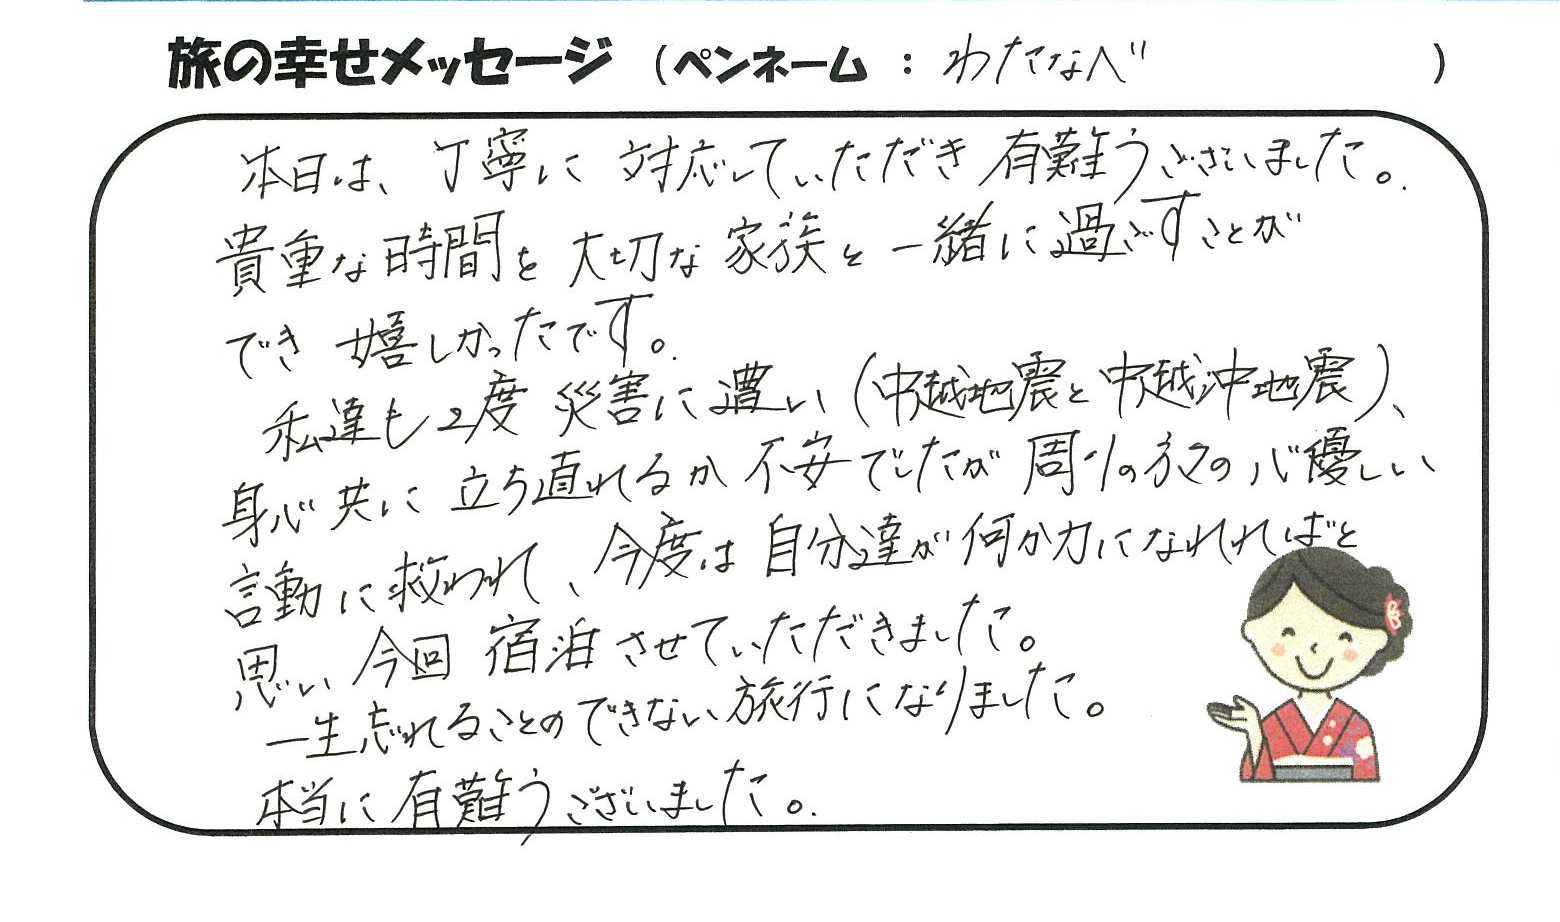 旅の幸せメッセージ (ペンネーム : わたなべ )
本日は、丁寧に対応していただき有難うございました。
貴重な時間を大切な家族と一緒に過ごすことが
でき嬉しかったです。
私達も2度災害に遭い(中越地震と中越沖地震)、
身心共に立ち直れるか不安でしたが周りの方々の心優しい
言動に救われ、今度は自分達が何か力になれればと
思い今回宿泊させていただきました。
一生忘れることのできない旅行になりました。
本当に有難うございました。